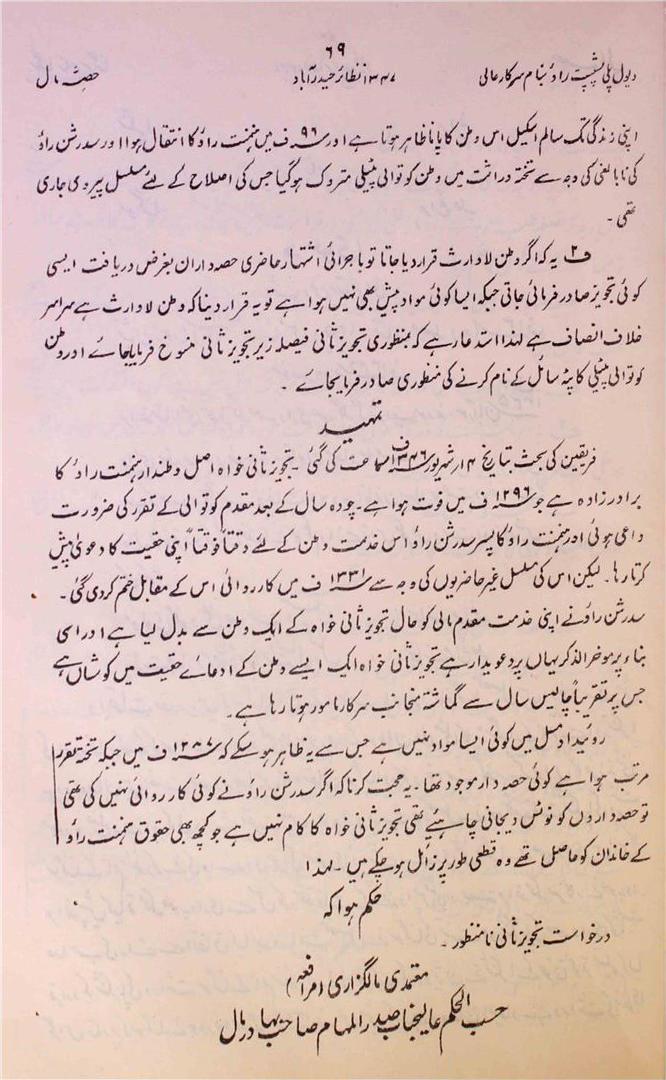 ۶۹
دیول پلی پشپت راؤ بنام سرکار عالی ۱۳۴۷ نظائر حیدرآباد حصہ، ل
اپنی زندگی تک سالم اسکیل اس وطن کا پانا ظاہر ہوتا ہے اور ۹۶ ف میں ہنمنت راؤ کا انتقال ہوا اور سدرشن راؤ
کی نابالغی کی وجہ سے تختہ وراثت میں وطن کوتوالی پٹیلی متروک ہوگیا جس کی اصلاح کے لئے مسلسل پیروی جاری
تھی ۔
ف۲ یہ کہ اگر وطن لاوارث قرار دیا جاتا تو باجرائی اشتہار حاضری حصہ داران بغرض دریافت ایسی
کوئی تجویز صادر فرمائی جاتی جبکہ ایسا کوئی مواد پیش بھی نہیں ہوا ہے تو یہ قرار دینا کہ وطن لاوارث ہے سراسر
خلاف انصاف ہے لہٰذا استدعا ہے کہ بمنظوری تجویز ثانی فیصلہ زیر تجویز ثانی منسوخ فرمایا جائے اور وطن
کوتوالی پٹیلی کا پٹہ سائل کے نام کرنے کی منظوری صادر فرمایجائے ۔
تمہید
فریقین کی بحث بتاریخ ۱۴ ؍ شہریور ۱۳۴۶ ف سماعت کی گئی ۔ تجویز ثانی خواہ اصل وطندار ہنمنت راؤ کا
برادر زادہ ہے جو ۱۲۹۶ ف میں فوت ہوا ہے ۔ چودہ سال کے بعد مقدم کوتوالی کے تقرر کی ضرورت
داعی ہوئی اور ہنمنت راؤ کا پسر سدرشن راؤ اس خدمت وطن کے لئے وقتاً فوقتاً اپنی حقیت کا دعویٰ پیش
کرتا رہا ۔ لیکن اس کی مسلسل غیر حاضریوں کی وجہ سے ۱۳۳۱ ف میں کارروائی اس کے مقابل ختم کر دی گئی ۔
سدرشن راؤ نے اپنی خدمت مقدم مالی کو حال تجویز ثانی خواہ کے ایک وطن سے بدل لیا ہے اور اسی
بناء پر موخر الذکر یہاں پر دعویدار ہے تجویز ثانی خواہ ایک ایسے وطن کے ادعائے حقیت میں کوشاں ہے
جس پر تقریباً چالیس سال سے گماشتہ منجانب سرکار مامور ہوتا رہا ہے ۔
روئیداد مسل میں کوئی ایسا مواد نہیں ہے جس سے یہ ظاہر ہو سکے کہ ۱۲۸۷ ف میں جبکہ تختہ تقرر
مرتب ہوا ہے کوئی حصہ دار موجود تھا ۔ یہ حجت کرنا کہ اگر سدرشن راؤ نے کوئی کارروائی نہیں کی تھی
تو حصہ داروں کو نوٹس دیجانی چاہیئے تھی تجویز ثانی خواہ کا کام نہیں ہے جو کچھ بھی حقوق ہنمنت راؤ
کے خاندان کو حاصل تھے وہ قطعی طور پر زائل ہو چکے ہیں ۔ لہذا
حکم ہوا کہ
درخواست تجویز ثانی نامنظور ۔
معتمدی مالگزاری (مرافعہ)
حسب الحکم عالیجناب صدر المہام صاحب بہادر مال